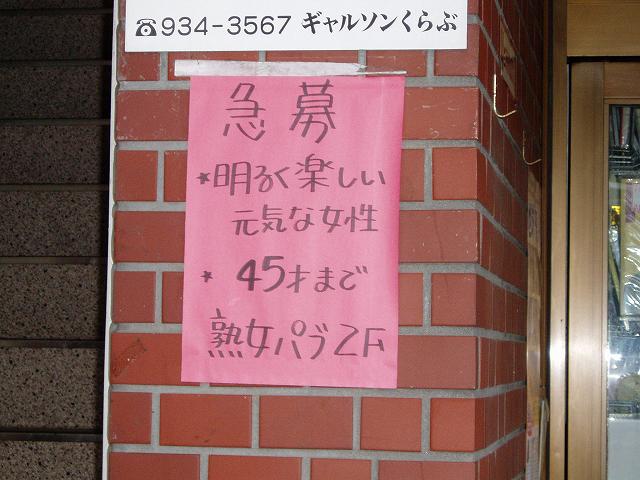 ☎934-3567 ギャルソンくらぶ
急募
★明るく楽しい
元気な女性
★45才まで
熟女パブ2F